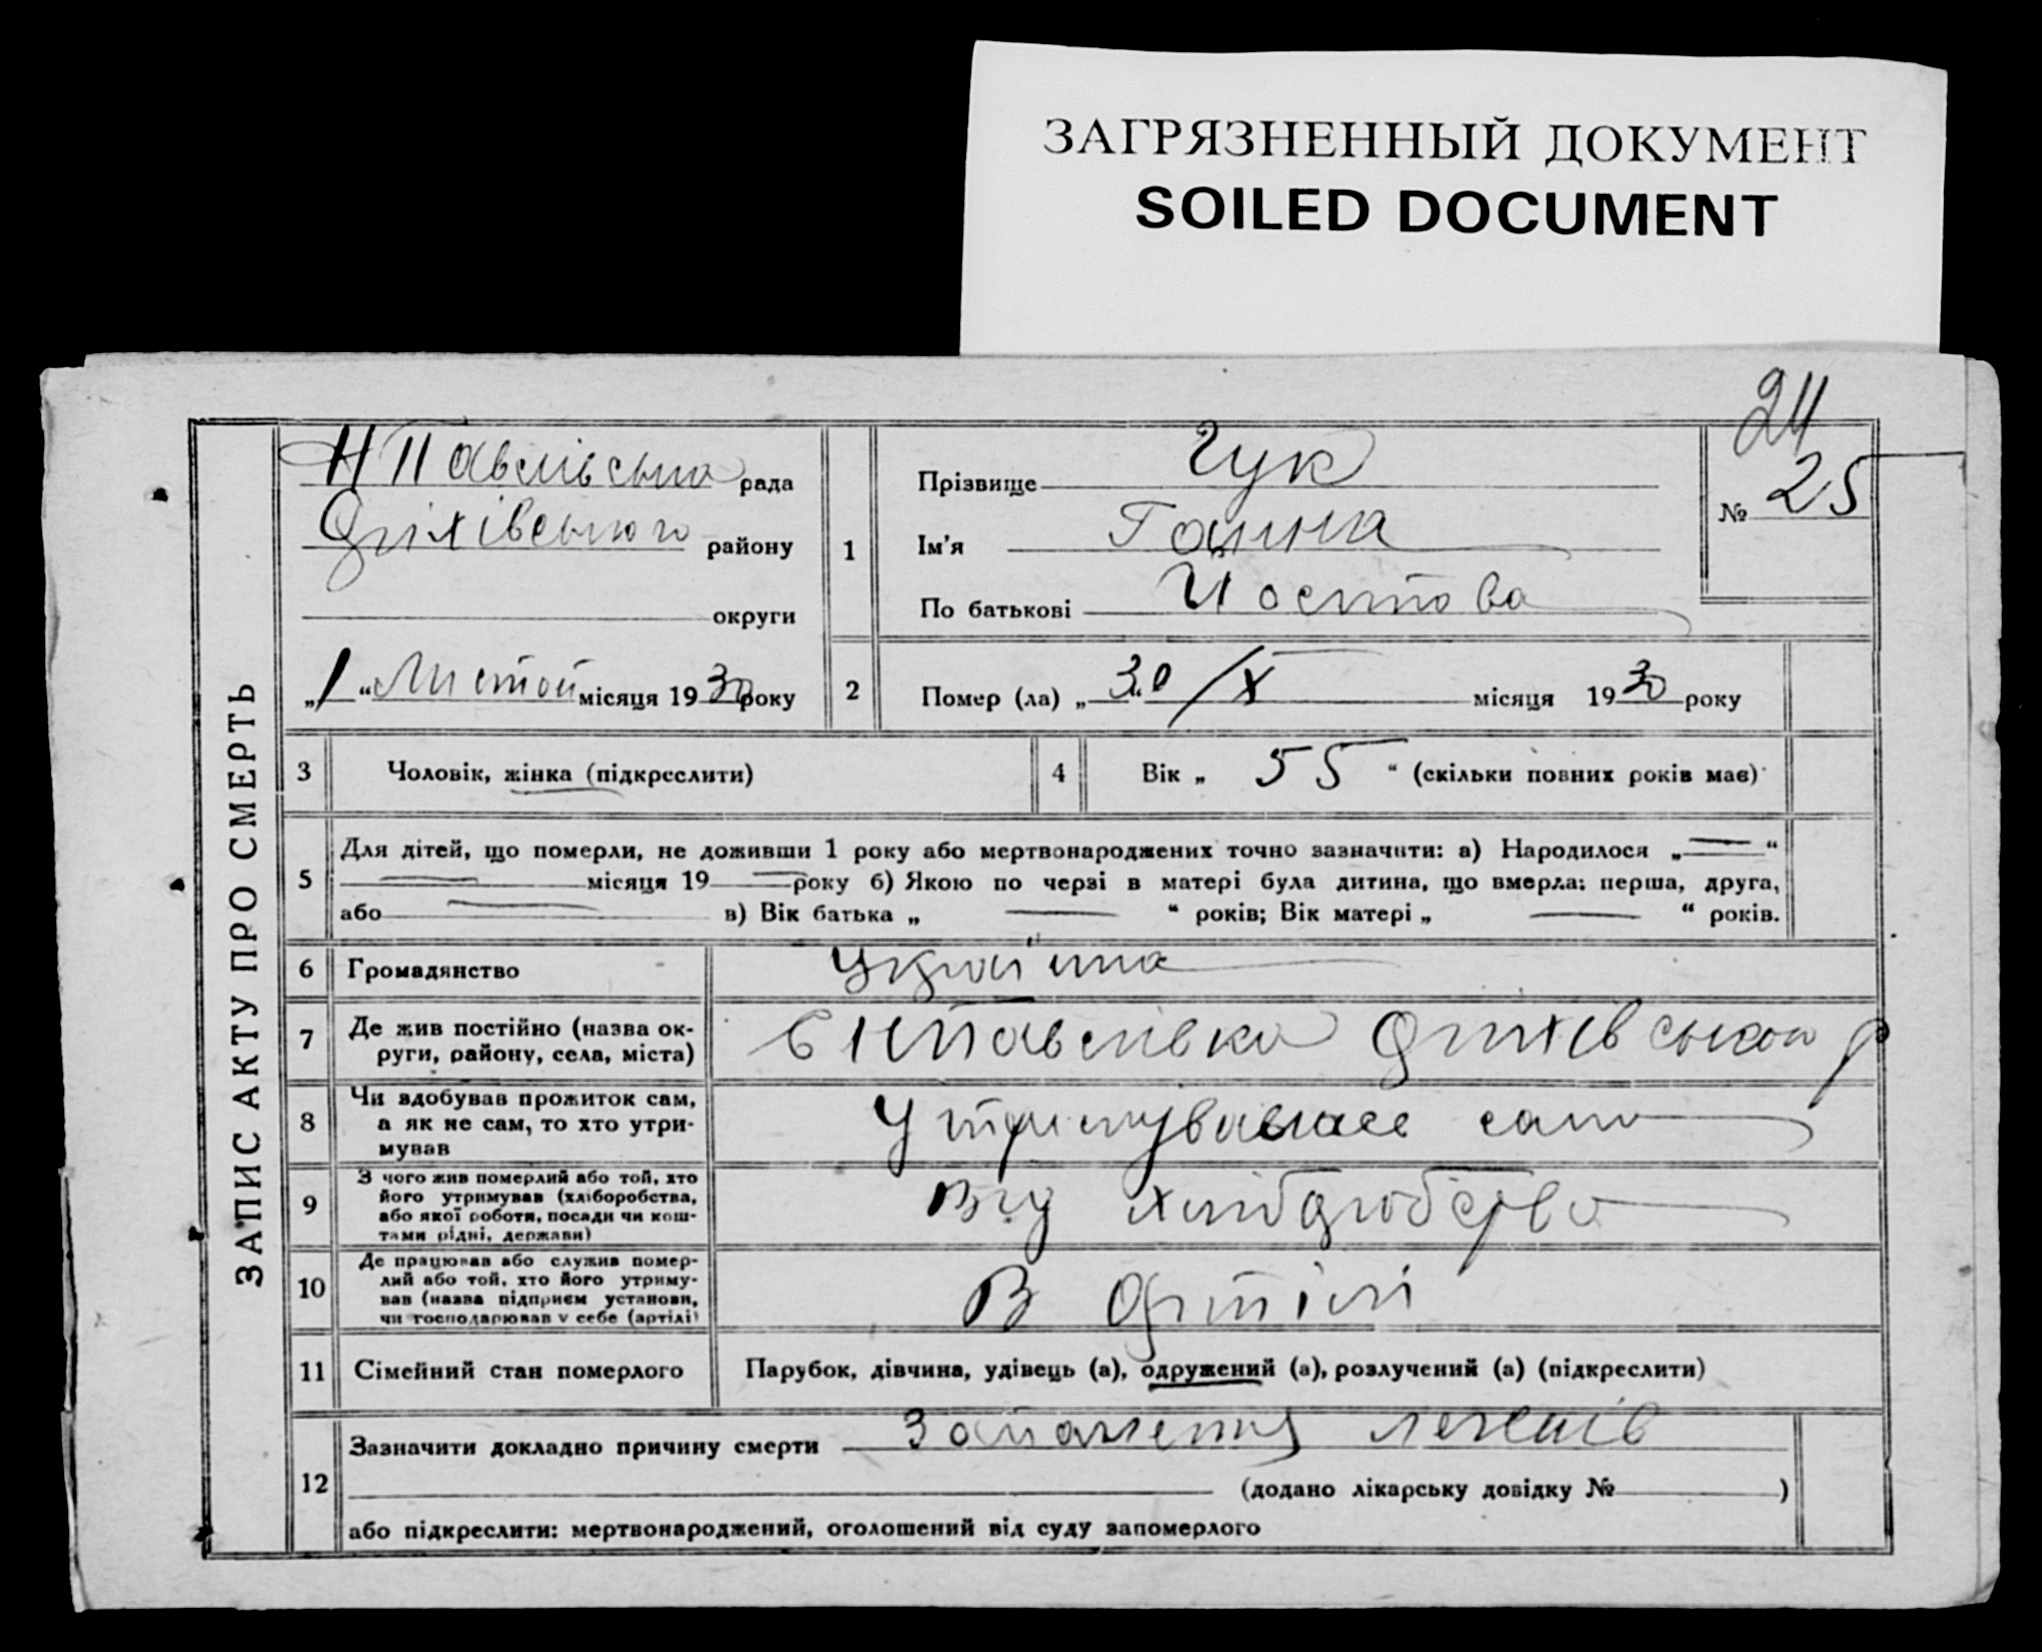 ЗАГРЯЗНЕННЫЙ ДОКУМЕНТ
SOILED DOCUMENT
24
ЗАПИС АКТУ ПРО СМЕРТЬ
НПавлівська рада
Оріхівського району
округи
„1“ Листоп місяця 1930 року
1
Прізвище Гук
Ім'я Ганна
По батькові Йостова
№ 25
2
Помер (ла) „30“ /X місяця 1930 року
3 Чоловік, жінка (підкреслити)
4 Вік „55“ (скільки повних років має)
5
Для дітей, що померли, не доживши 1 року або мертвонароджених точно зазначити: а) Народилося „—“
— місяця 19— року б) Якою по черзі в матері була дитина, що вмерла: перша, друга,
або — в) Вік батька „ — “ років; Вік матері „ — “ років.
6 Громадянство Україна
7 Де жив постійно (назва ок-
руги, району, села, міста)
с НПавлівка Оріхівського р
8 Чи здобував прожиток сам,
а як не сам, то хто утри-
мував
Утримувалась сама
9 З чого жив померлий або той, хто
його утримував (хліборобства,
або якої роботи, посади чи кош-
тами рідні, держави)
Від хліборобства
10 Де працював або служив помер-
лий або той, хто його утриму-
вав (назва підприєм установи,
чи господарював у себе (артілі)
В Артілі
11 Сімейний стан померлого
Парубок, дівчина, удівець (а), одружений (а), розлучений (а) (підкреслити)
12
Зазначити докладно причину смерти Запалення легенів
(додано лікарську довідку № )
або підкреслити: мертвонароджений, оголошений від суду запомерлого